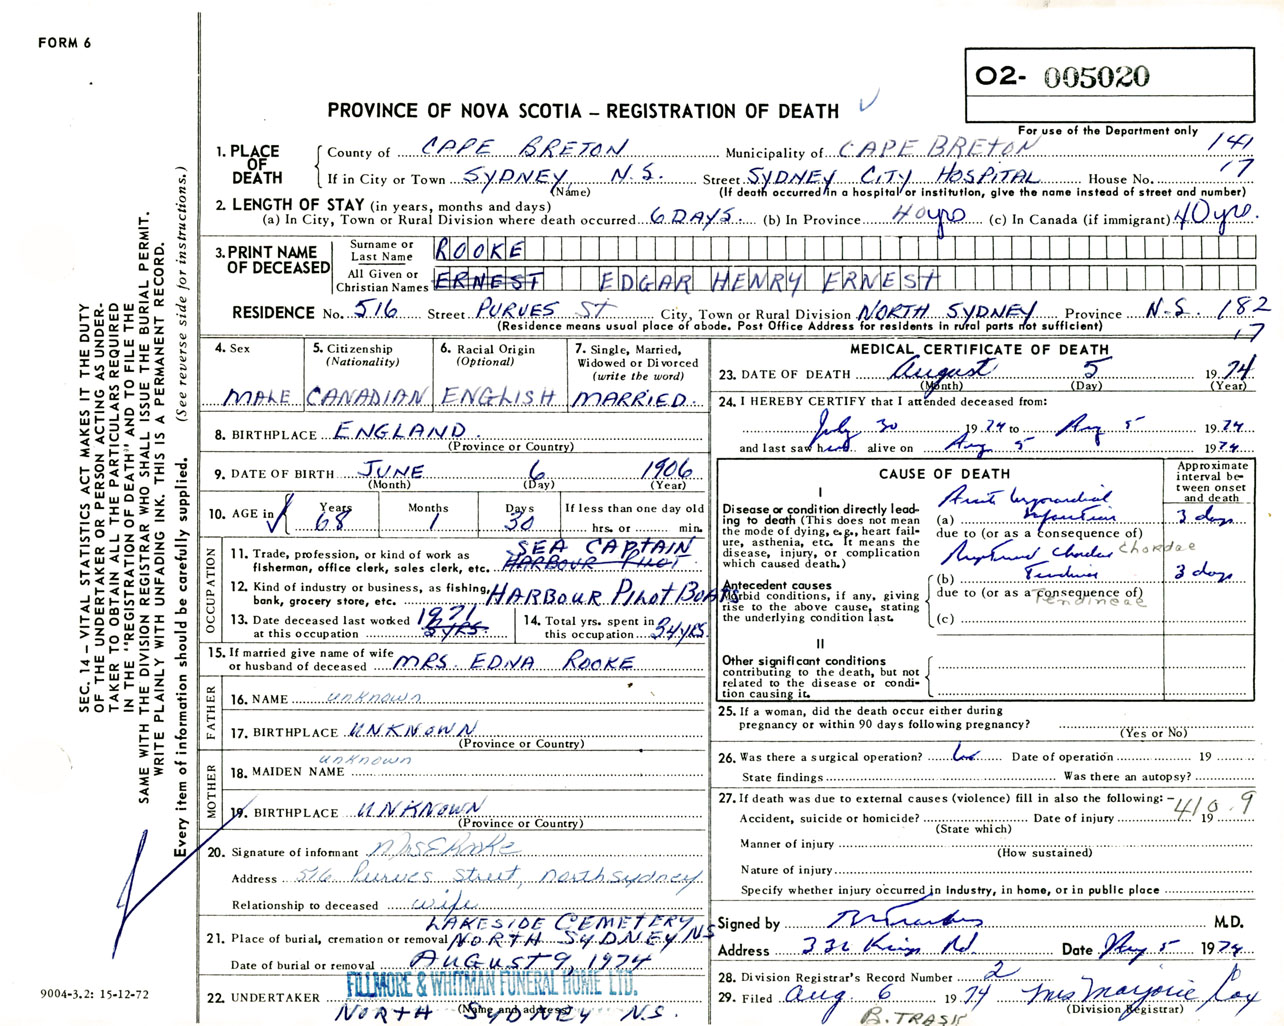 FORM 6
O2- 005020
PROVINCE OF NOVA SCOTIA – REGISTRATION OF DEATH
For use of the Department only
1. PLACE OF DEATH County of CAPE BRETON Municipality of CAPE BRETON 141
If in City or Town SYDNEY, N.S. Street SYDNEY CITY HOSPITAL House No. 17
(Name) (If death occurred in a hospital or institution, give the name instead of street and number)
2. LENGTH OF STAY (in years, months and days)
(a) In City, Town or Rural Division where death occurred 6 DAYS. (b) In Province 40 yrs (c) In Canada (if immigrant) 40 yrs.
3. PRINT NAME OF DECEASED
Surname or Last Name ROOKE
All Given or Christian Names ERNEST EDGAR HENRY ERNEST
RESIDENCE No. 516 Street PURVES ST City, Town or Rural Division NORTH SYDNEY Province N.S. 182
17
(Residence means usual place of abode. Post Office Address for residents in rural parts not sufficient)
4. Sex 5. Citizenship (Nationality) 6. Racial Origin (Optional) 7. Single, Married, Widowed or Divorced (write the word)
MALE CANADIAN ENGLISH MARRIED.
8. BIRTHPLACE ENGLAND.
(Province or Country)
9. DATE OF BIRTH JUNE 6 1906
(Month) (Day) (Year)
10. AGE in Years Months Days If less than one day old
68 1 30 hrs. or min.
OCCUPATION
11. Trade, profession, or kind of work as fisherman, office clerk, sales clerk, etc. SEA CAPTAIN
HARBOUR PILOT
12. Kind of industry or business, as fishing, bank, grocery store, etc. HARBOUR PILOT BOATS
13. Date deceased last worked at this occupation 1971
3 YRS.
14. Total yrs. spent in this occupation 34 YRS
15. If married give name of wife or husband of deceased MRS. EDNA ROOKE
FATHER
16. NAME unknown
17. BIRTHPLACE UNKNOWN
(Province or Country)
MOTHER
unknown
18. MAIDEN NAME
19. BIRTHPLACE UNKNOWN
(Province or Country)
20. Signature of informant Mrs E Rooke
Address 516 Purves Street, North Sydney
Relationship to deceased wife
LAKESIDE CEMETERY
21. Place of burial, cremation or removal NORTH SYDNEY NS
Date of burial or removal AUGUST 9, 1974
FILLMORE & WHITMAN FUNERAL HOME LTD.
22. UNDERTAKER (Name and address)
NORTH SYDNEY N.S.
MEDICAL CERTIFICATE OF DEATH
23. DATE OF DEATH August 5 1974
(Month) (Day) (Year)
24. I HEREBY CERTIFY that I attended deceased from:
July 30 1974 to Aug 5 1974
and last saw him alive on Aug 5 1974
CAUSE OF DEATH
Approximate interval between onset and death
I
Disease or condition directly leading to death (This does not mean the mode of dying, e.g., heart failure, asthenia, etc. It means the disease, injury, or complication which caused death.)
Acute Myocardial
(a) Infarction 3 days
due to (or as a consequence of)
Ruptured Chordae Chordae
Antecedent causes
Morbid conditions, if any, giving rise to the above cause, stating the underlying condition last.
(b) Tendinae 3 days
due to (or as a consequence of)
Tendineae
(c)
II
Other significant conditions contributing to the death, but not related to the disease or condition causing it.
25. If a woman, did the death occur either during pregnancy or within 90 days following pregnancy?
(Yes or No)
26. Was there a surgical operation? No Date of operation 19
State findings Was there an autopsy?
27. If death was due to external causes (violence) fill in also the following: – 410.9
Accident, suicide or homicide? Date of injury 19
(State which)
Manner of injury
(How sustained)
Nature of injury
Specify whether injury occurred in Industry, in home, or in public place
Signed by M.D.
Address 336 Kings Rd. Date Aug 5 1974
28. Division Registrar's Record Number 2
29. Filed Aug 6 1974 Mrs Marjorie Cox
(Division Registrar)
B. TRASK
SEC. 14 – VITAL STATISTICS ACT MAKES IT THE DUTY
OF THE UNDERTAKER OR PERSON ACTING AS UNDER-
TAKER TO OBTAIN ALL THE PARTICULARS REQUIRED
IN THE "REGISTRATION OF DEATH" AND TO FILE THE
SAME WITH THE DIVISION REGISTRAR WHO SHALL ISSUE THE BURIAL PERMIT.
WRITE PLAINLY WITH UNFADING INK. THIS IS A PERMANENT RECORD.
Every item of information should be carefully supplied. (See reverse side for instructions.)
9004-3.2: 15-12-72